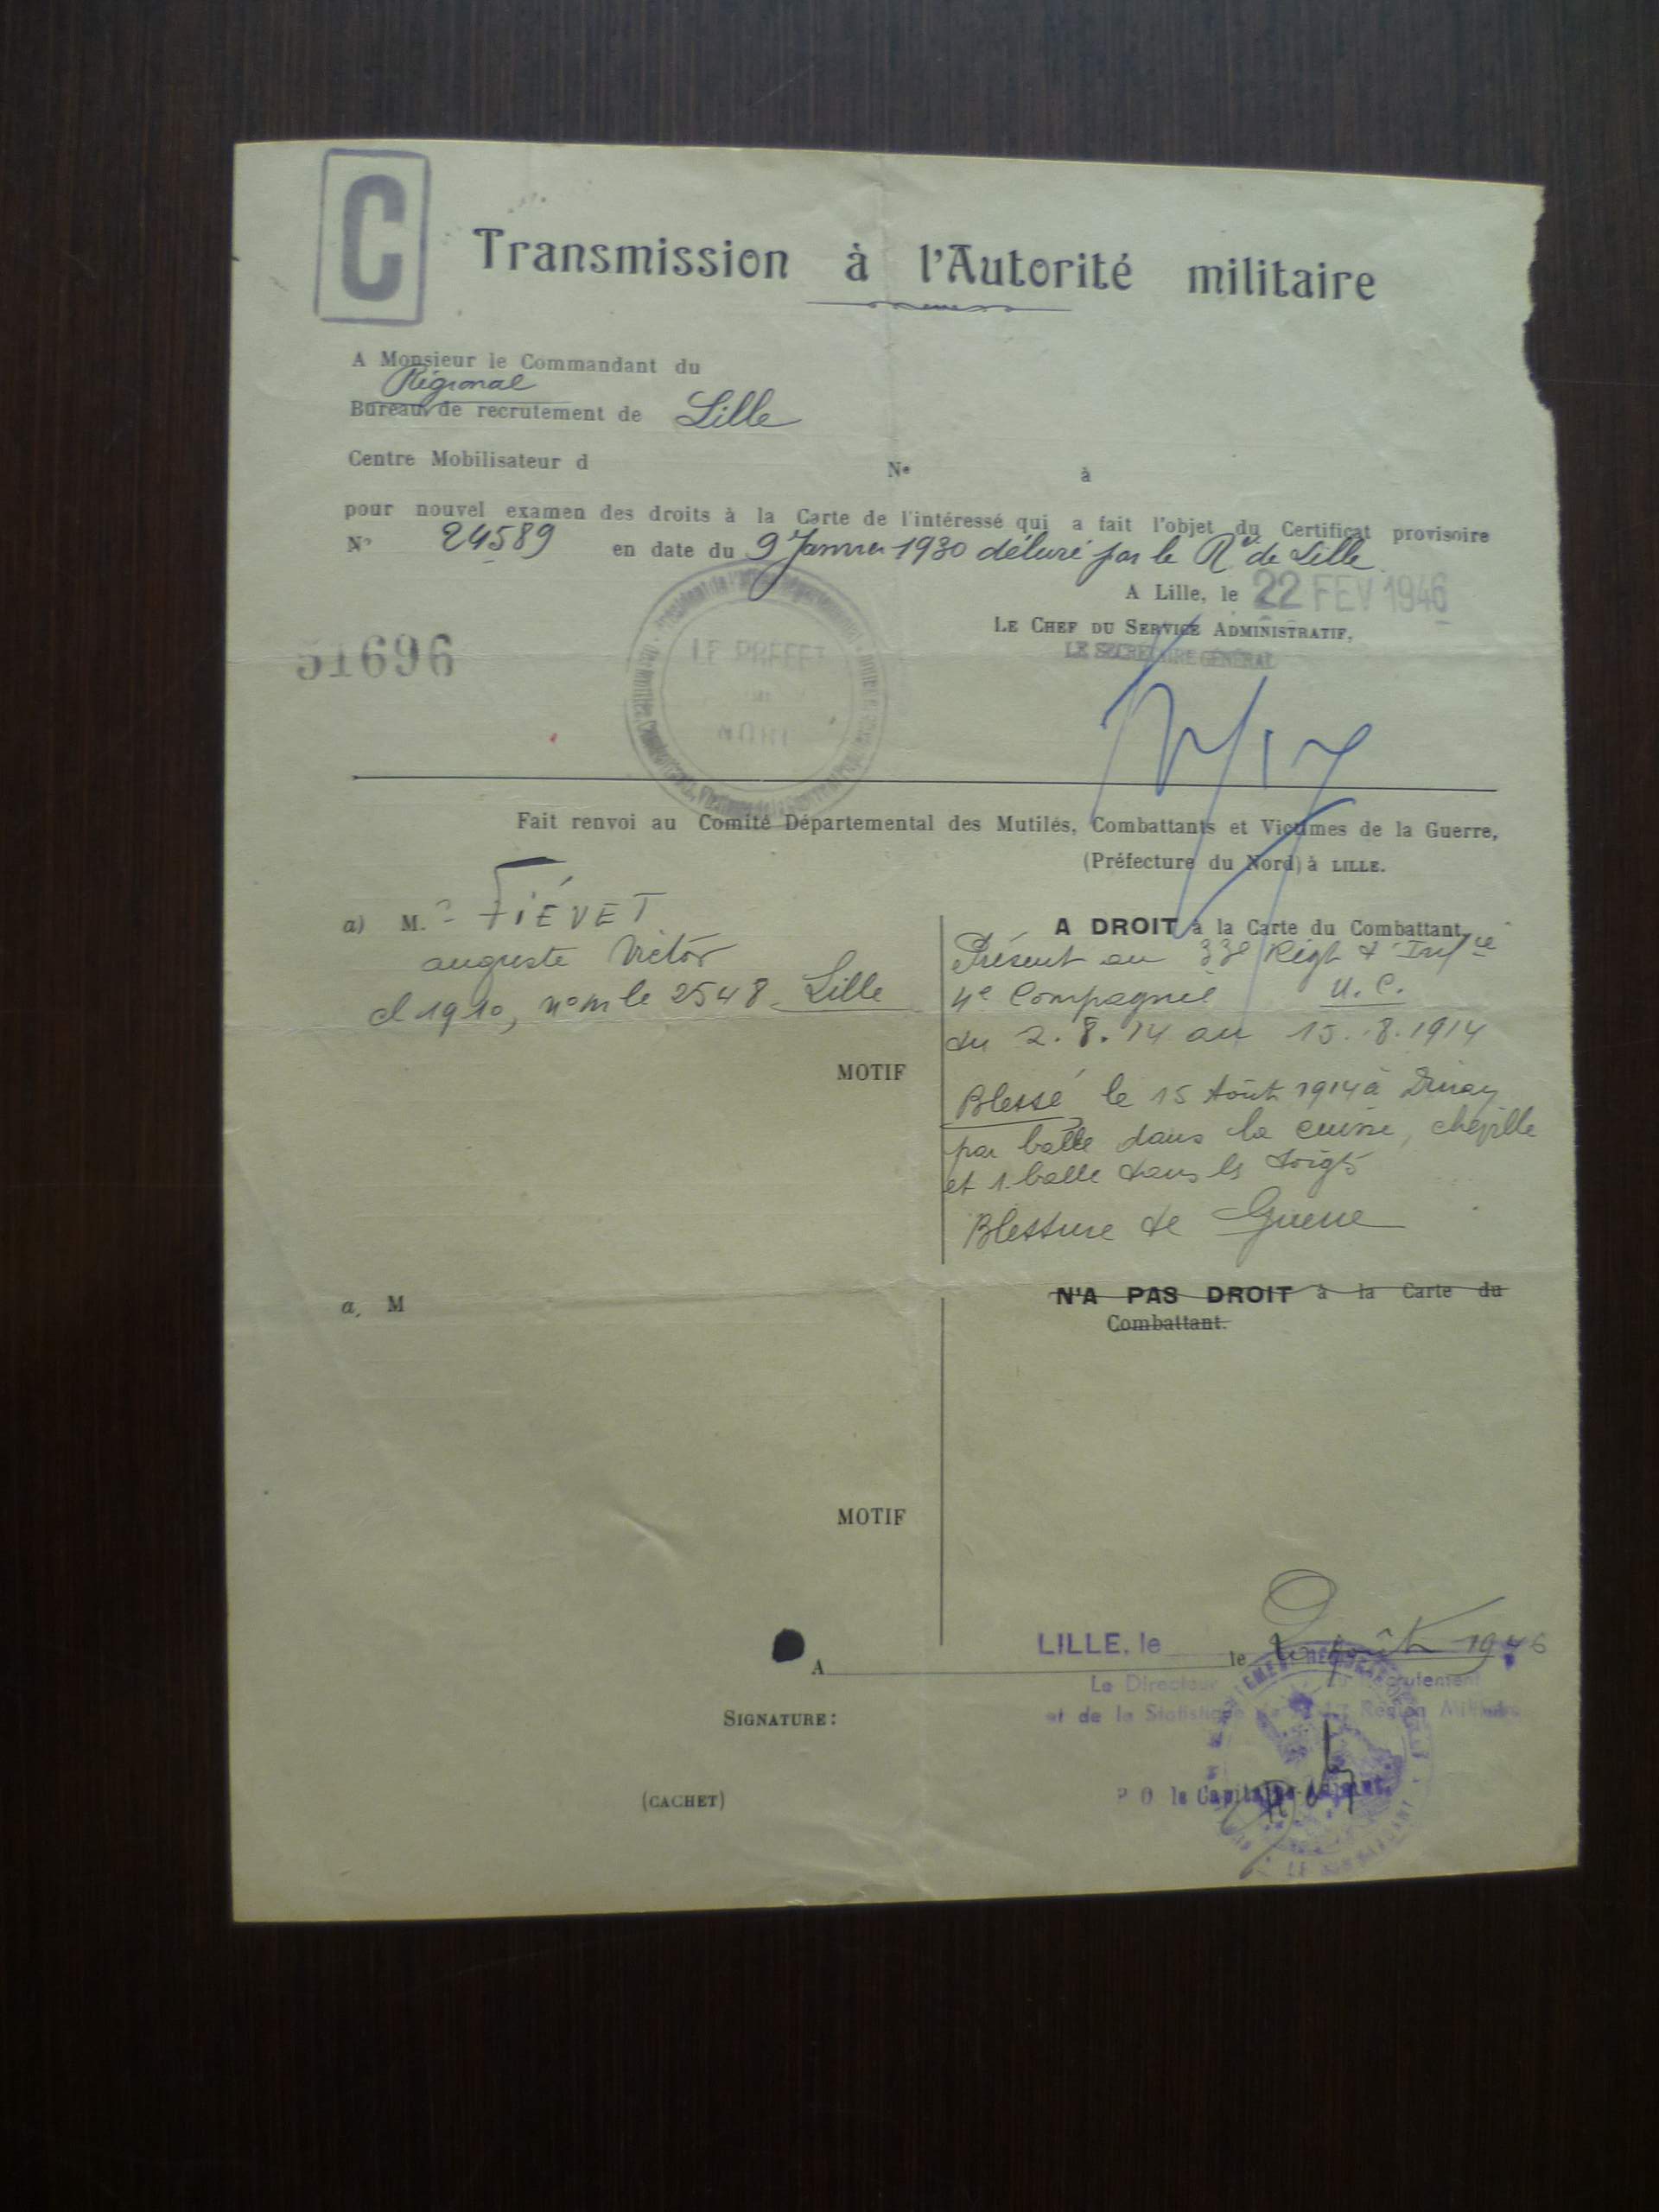 C
Transmission à l'Autorité militaire
A Monsieur le Commandant du
Régional
Bureau de recrutement de Lille
Centre Mobilisateur d N° à
pour nouvel examen des droits à la Carte de l'intéressé qui a fait l'objet du Certificat provisoire
N° 24589 en date du 9 Janvier 1930 délivré par le Rt de Lille
A Lille, le 22 FEV 1946
LE CHEF DU SERVICE ADMINISTRATIF,
LE SECRÉTAIRE GÉNÉRAL
51696
LE PRÉFET
NORD
Fait renvoi au Comité Départemental des Mutilés, Combattants et Victimes de la Guerre,
(Préfecture du Nord) à LILLE.
a) M. FIÉVET
auguste Victor
cl 1910, n° mle 2548 Lille
A DROIT à la Carte du Combattant
Présent au 33e Régt d'Infce
4e Compagnie U.C.
du 2.8.14 au 15.8.1914
MOTIF
Blessé le 15 Août 1914 à Dinan
par balle dans la cuisse, cheville
et 1 balle dans les doigts
Blessure de Guerre
a, M
N'A PAS DROIT à la Carte du
Combattant.
MOTIF
LILLE, le
A le 2 Août 1946
Le Directeur Recrutement
et de la Statistique Région Militaire
SIGNATURE:
P.O le Capitaine Adjoint,
(CACHET)